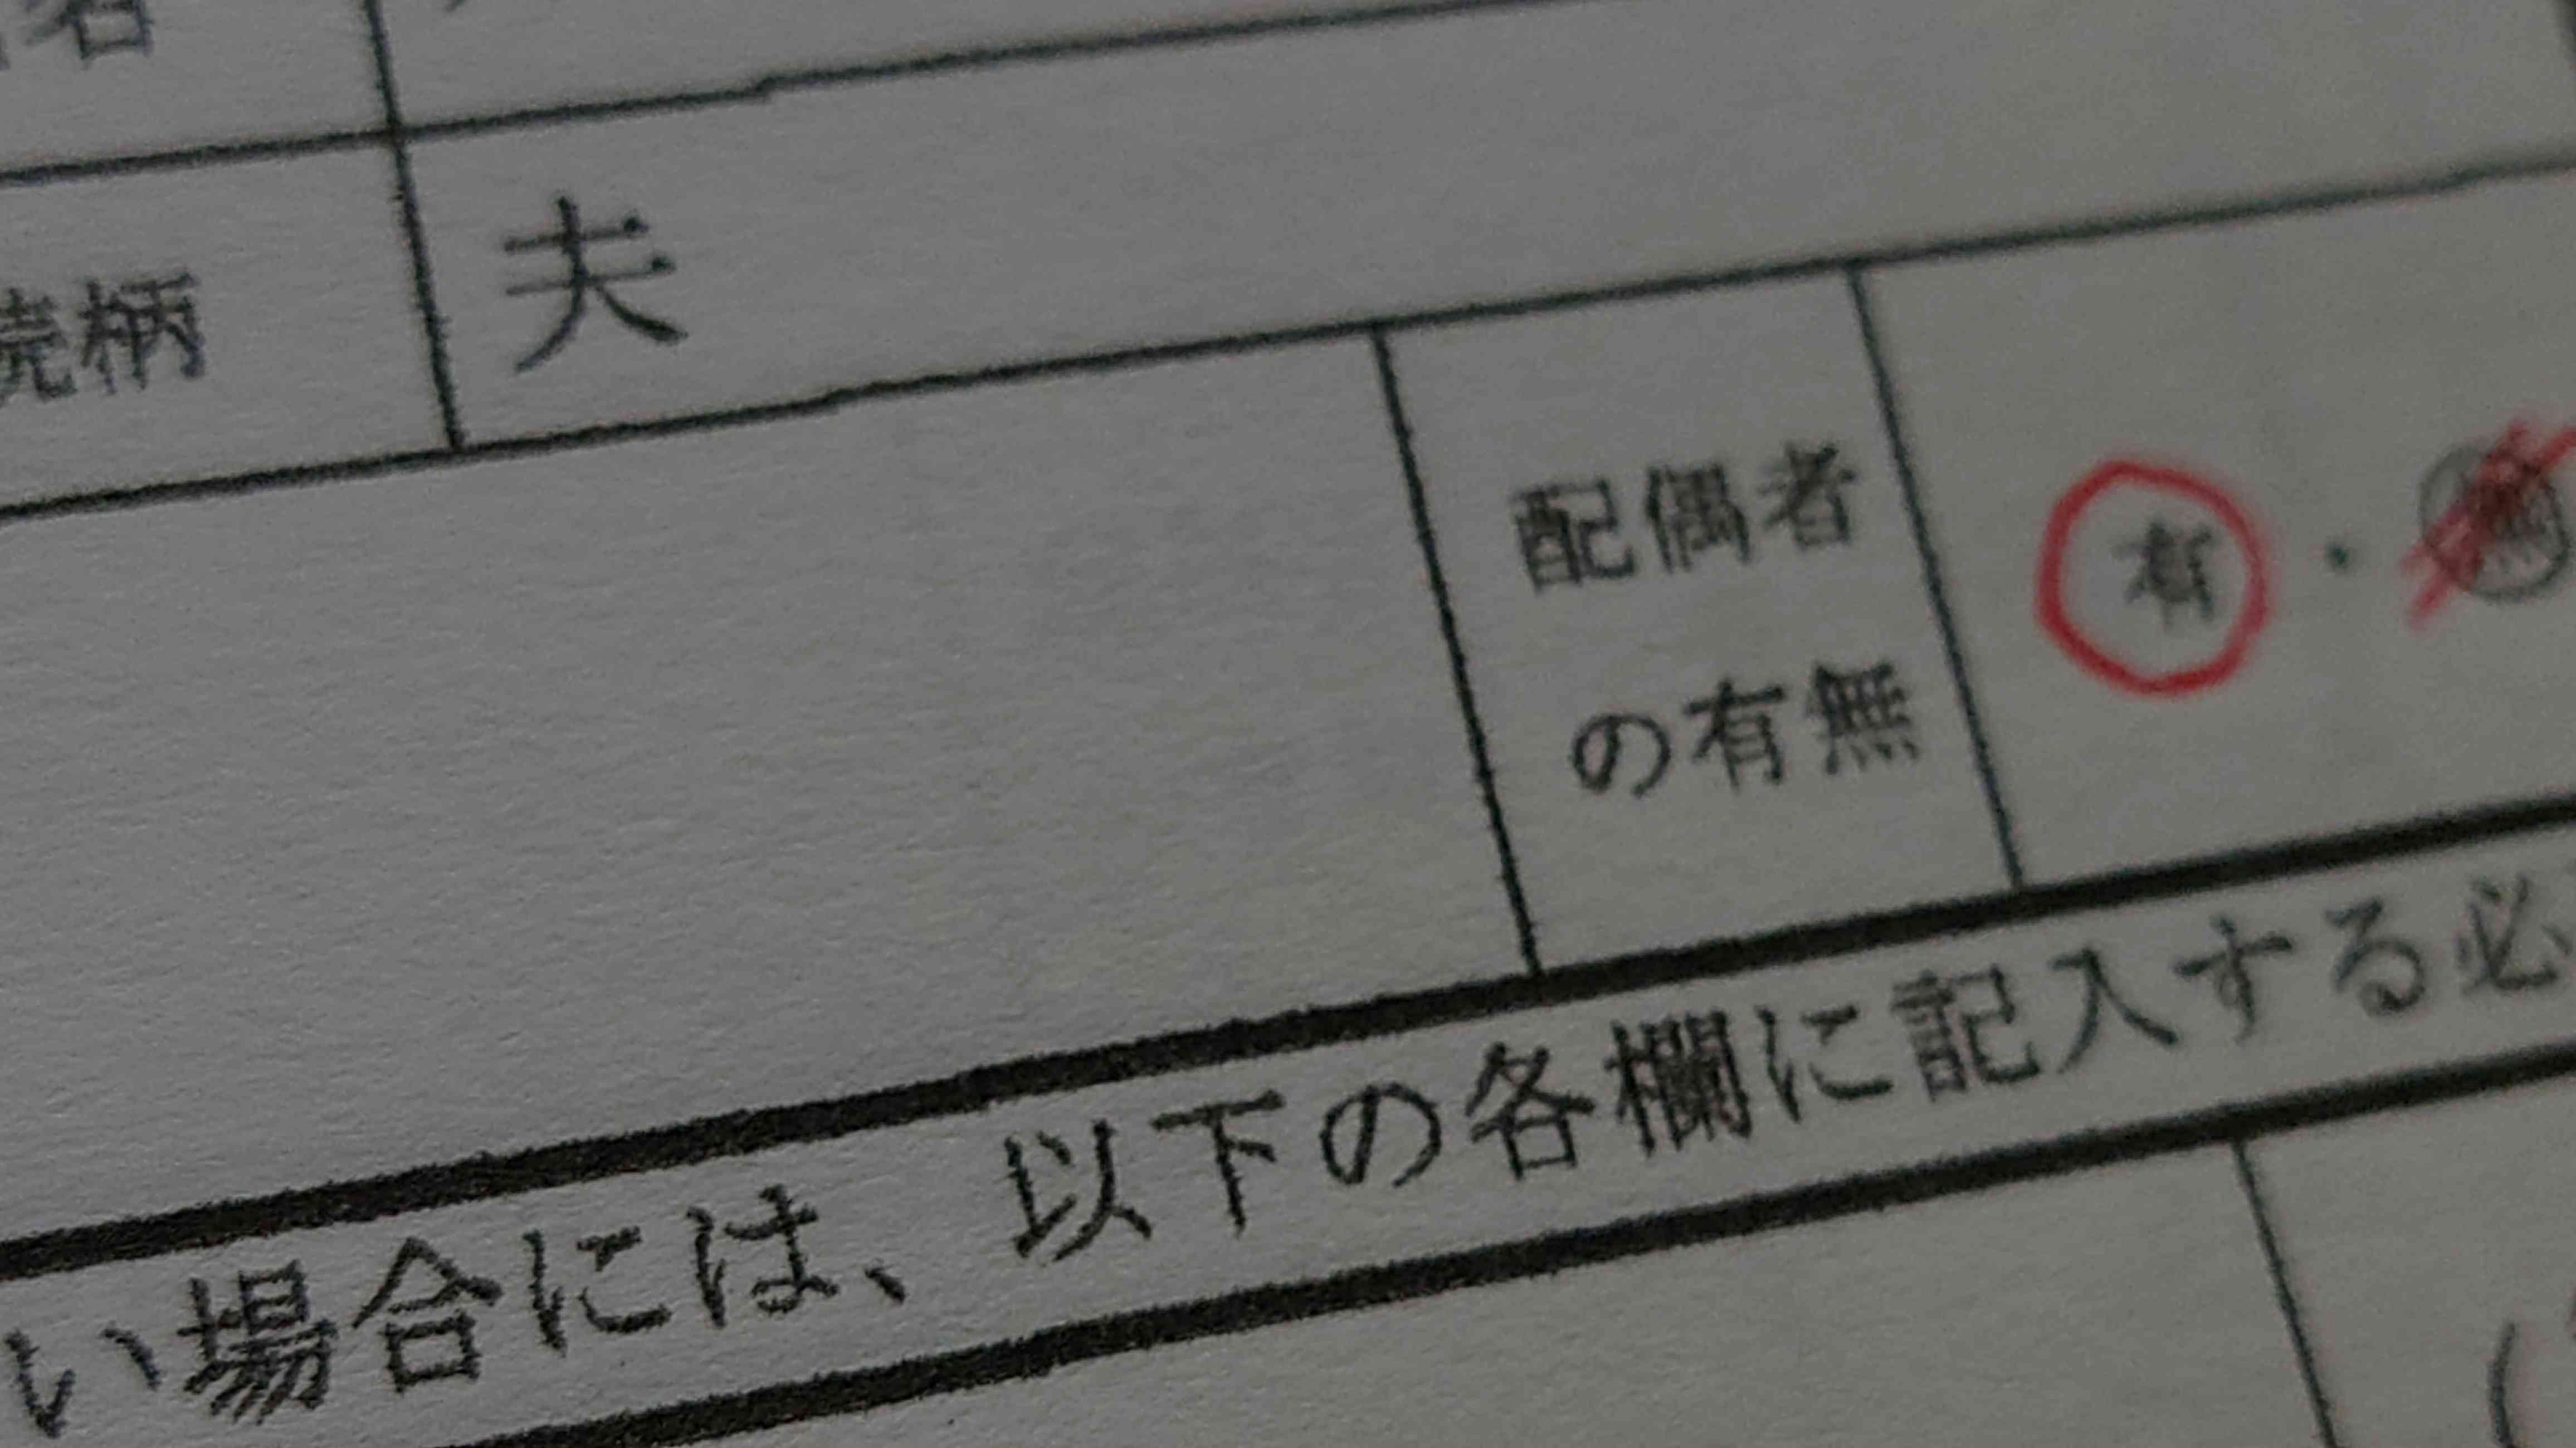 続柄
夫
配偶者
の有無
有・無
い場合には、以下の各欄に記入する必